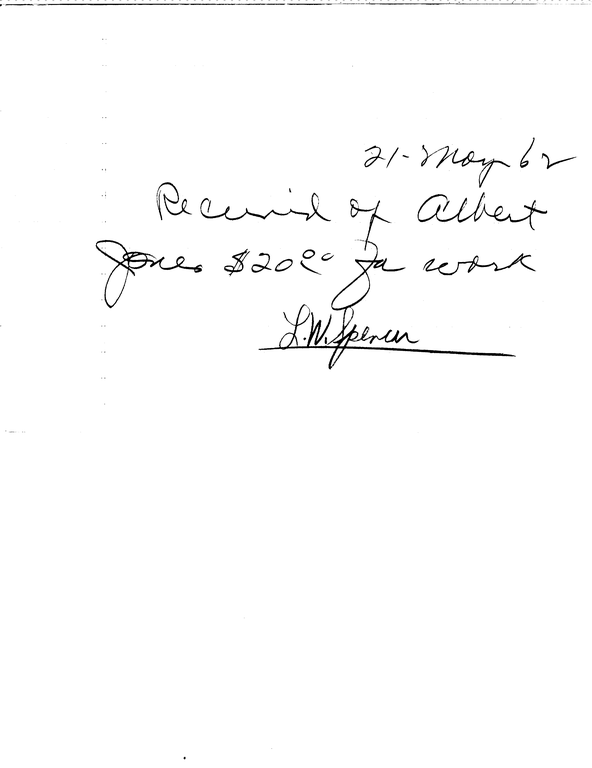 21-May 62
Received of Albert
Jones $20.00 for work
L.W. Spencer